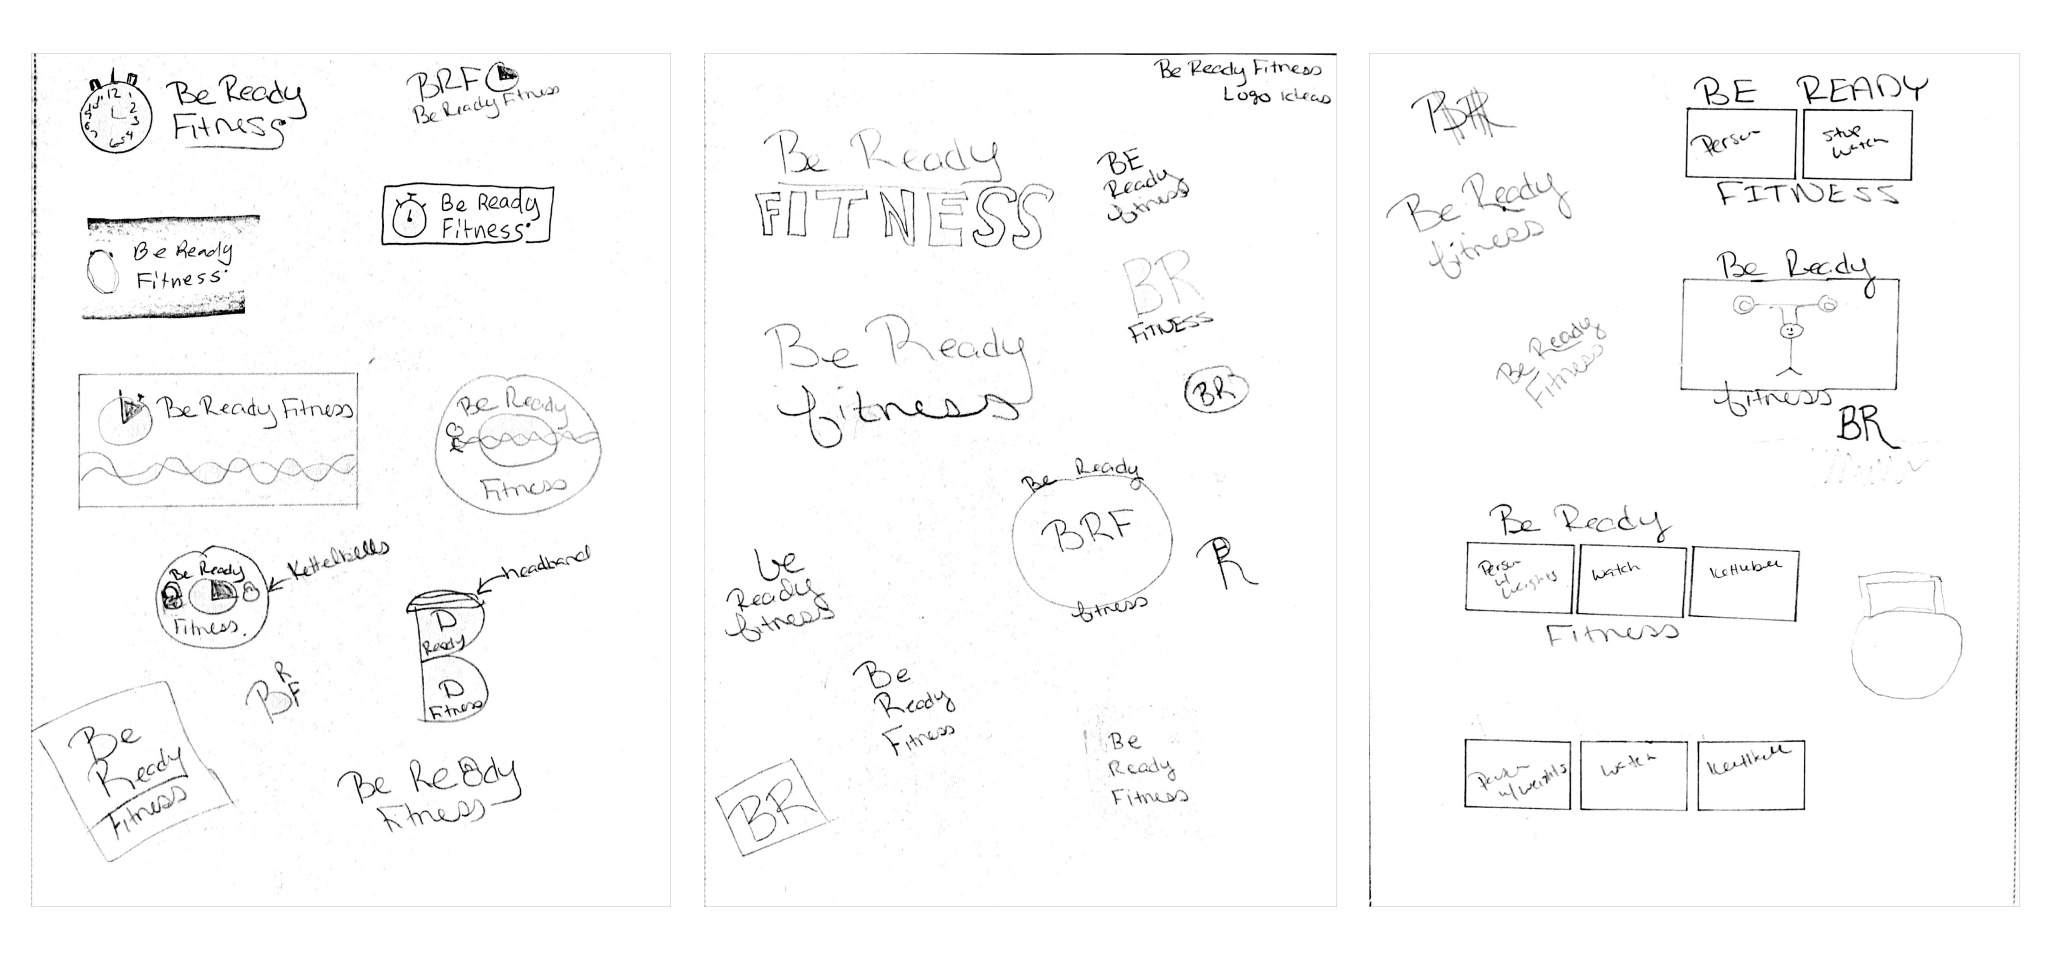 12
1
2
3
4
5
6
7
9
10
Be Ready
Fitness
BRF
Be Ready Fitness
Be Ready
Fitness
Be Ready
Fitness
Be Ready Fitness
Be Ready
Fitness
Be Ready
Fitness
Kettelbells
headband
Ready
Fitness
BRF
Be
Ready
Fitness
Be Ready
Fitness
Be Ready Fitness
Logo Ideas
Be Ready
FITNESS
BE
Ready
fitness
BR
FITNESS
Be Ready
fitness
BR
Be Ready
BRF
fitness
be
Ready
fitness
R
Be
Ready
Fitness
Be
Ready
Fitness
BR
BE READY
Person
Stop
Watch
FITNESS
Be Ready
fitness
Be Ready
fitness
Be Ready
Fitness
BR
Be Ready
Person
w/
weights
watch
Kettlebell
Fitness
Person
w/weights
watch